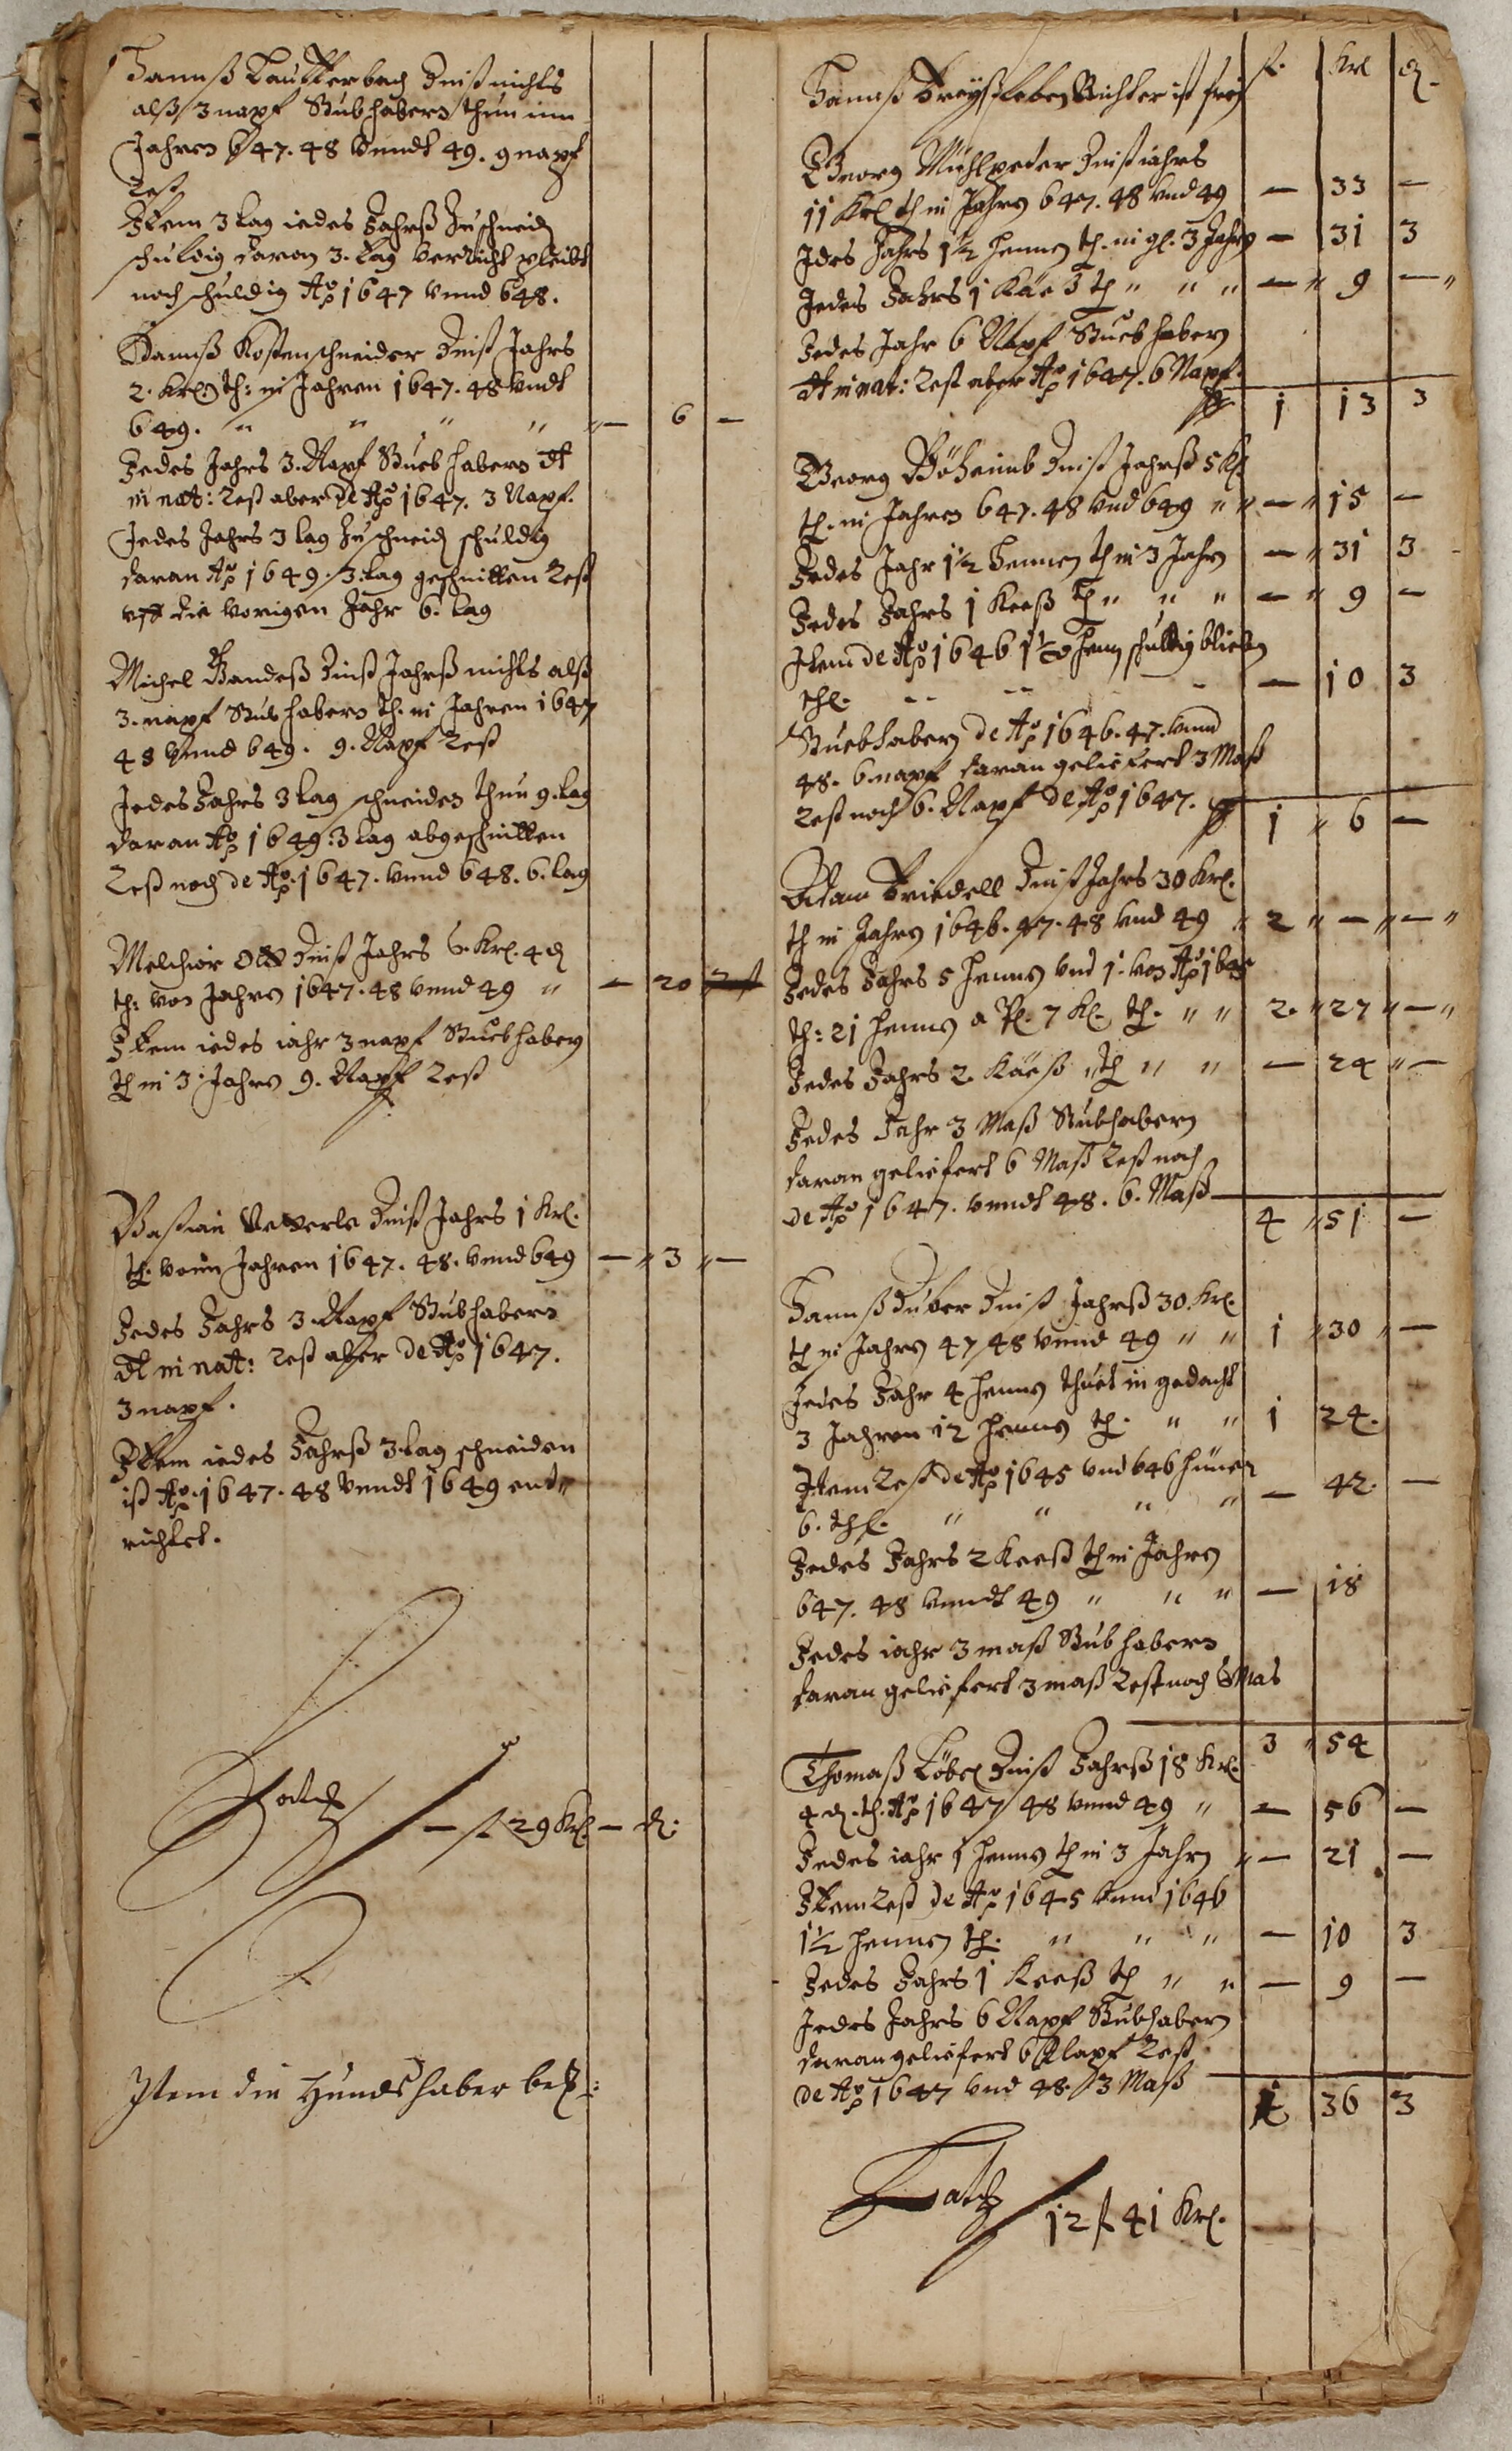 Hannß Lautterbach Zinst nichts
alß 3 napf Stubhabern thun inn
Jahren 647. 48 vnndt 49. 9 napf
Rest
Item 3 tag iedes Jahrß zu schneid
schuldig daran 3. tag verricht pleibt
noch schuldig Ao 1647 vnnd 648.
Hannß Kostenschneider Zinst Jahrs
2. Krl. th: in Jahren 1647. 48 vndt
649. " " " " — 6 —
Jedes Jahrs 3. Napf Stubhabern dt
in nat: Rest aber de Ao 1647. 3 Napf.
Jedes Jahrs 3 tag zu schneid schuldig
daran Ao 1649. 3. tag geschnitten Rest
vff die vorigen Jahr 6. tag
Michel Bandeß Zinst Jahrß nichts alß
3. napf Stubhabern th. in Jahren 1647
48 vnnd 649. 9. Napf Rest
Jedes Jahrs 3 tag schneiden thun 9. tag
daran Ao 1649: 3 tag abgeschnitten
Rest noch de Ao 1647. vnnd 648. 6. tag
Melchior Ott Zinst Jahrs 6. Krl. 4 d
th: von Jahren 1647. 48 vnnd 49 " — 20
Item iedes iahr 3 napf Stubhabern
th in 3 Jahren 9. Napf Rest
Bastian Zinst Jahrs 1 Krl.
th. vonn Jahren 1647. 48. vnnd 649 — " 3 " —
Jedes Jahrs 3. Napf Stubhabern
dt in nat: Rest aber de Ao 1647.
3 napf.
Item iedes Jahrß 3 tag schneiden
ist Ao. 1647. 48 vnndt 1649 ent"
richtet.
Latus — fl 29 Krl — d:
Item die Hundshaber
Hannß Freyßleben Richter ist frey fl. Krl d.
Georg Mühlpeder Zinst iahrs
11 Krl th in Jahren 647. 48 vnd 49 — 33 —
Jdes Jahrs 1½ hennen th. in gl. 3 Jahrn — 31 3
Jedes Jahrs 1 Käe ß th " " " — " 9 — "
Jedes Jahr 6 Napf Stubhabern
dt in nat: Rest aber Ao 1647. 6 Napf.
1 13 3
Georg Böheimb Zinst Jahrß 5 Kl
th. in Jahren 647. 48 vnd 649 " " — " 15 —
Jedes Jahr 1½ Hennen th in 3 Jahrn — " 31 3
Jedes Jahrs 1 Keeß th " " " — " 9 —
Item de Ao 1646 1½ henn schuldig blieben
thl. — 10 3
Stuebhabern de Ao 1646. 47. vnnd
48. 6 napf daran geliefert 3 Maß
Rest noch 6. Napf de Ao 1647. 1 " 6 —
Adam Friedell Zinst Jahrs 30 Krl.
th in Jahrn 1646. 47. 48 vnd 49 " 2 " — " — "
Jedes Jahrs 5 hennen vnd 1. von Ao 1645
th: 21 hennen a Pl. 7 Kl. th. " " 2. " 27 " — "
Jedes Jahrs 2. Käeß th " " — 24 " —
Jedes Jahr 3 Maß Stubhabern
daran geliefert 6 Maß Rest noch
de Ao 1647. vnndt 48. 6. Maß
4 " 51 —
Hannß Duber Zinst Jahrß 30. Krl.
th in Jahren 47 48 vnnd 49 " " 1 " 30 " —
Jedes Jahr 4 hennen thuet in gedacht
3 Jahren 12 hennen th. " " 1 24.
Item Rest de Ao 1645 vnd 646 hüner
6. thl. " " " " — 42. —
Jedes Jahrs 2 Keeß th in Jahren
647. 48 vnndt 49 " " " — 18
Jedes iahr 3 maß Stubhabern
daran geliefert 3 maß Rest noch 6 Mas
3 " 54
Thomaß Löbel Zinst Jahrß 18 Krl.
4 d. th. Ao 1647 48 vnnd 49 " — 56 —
Jedes iahr 1 hennen th in 3 Jahrn " — 21 —
Item Rest de Ao 1645 vnnd 1646
1½ hennen th. " " " — 10 3
Jedes Jahrs 1 Keeß th " " — 9 —
Jedes Jahrs 6 Napf Stubhabern
daran geliefert 6 Napf Rest
de Ao 1647 vnd 48. 3 Maß
1 36 3
Latus 12 fl 41 Krl.